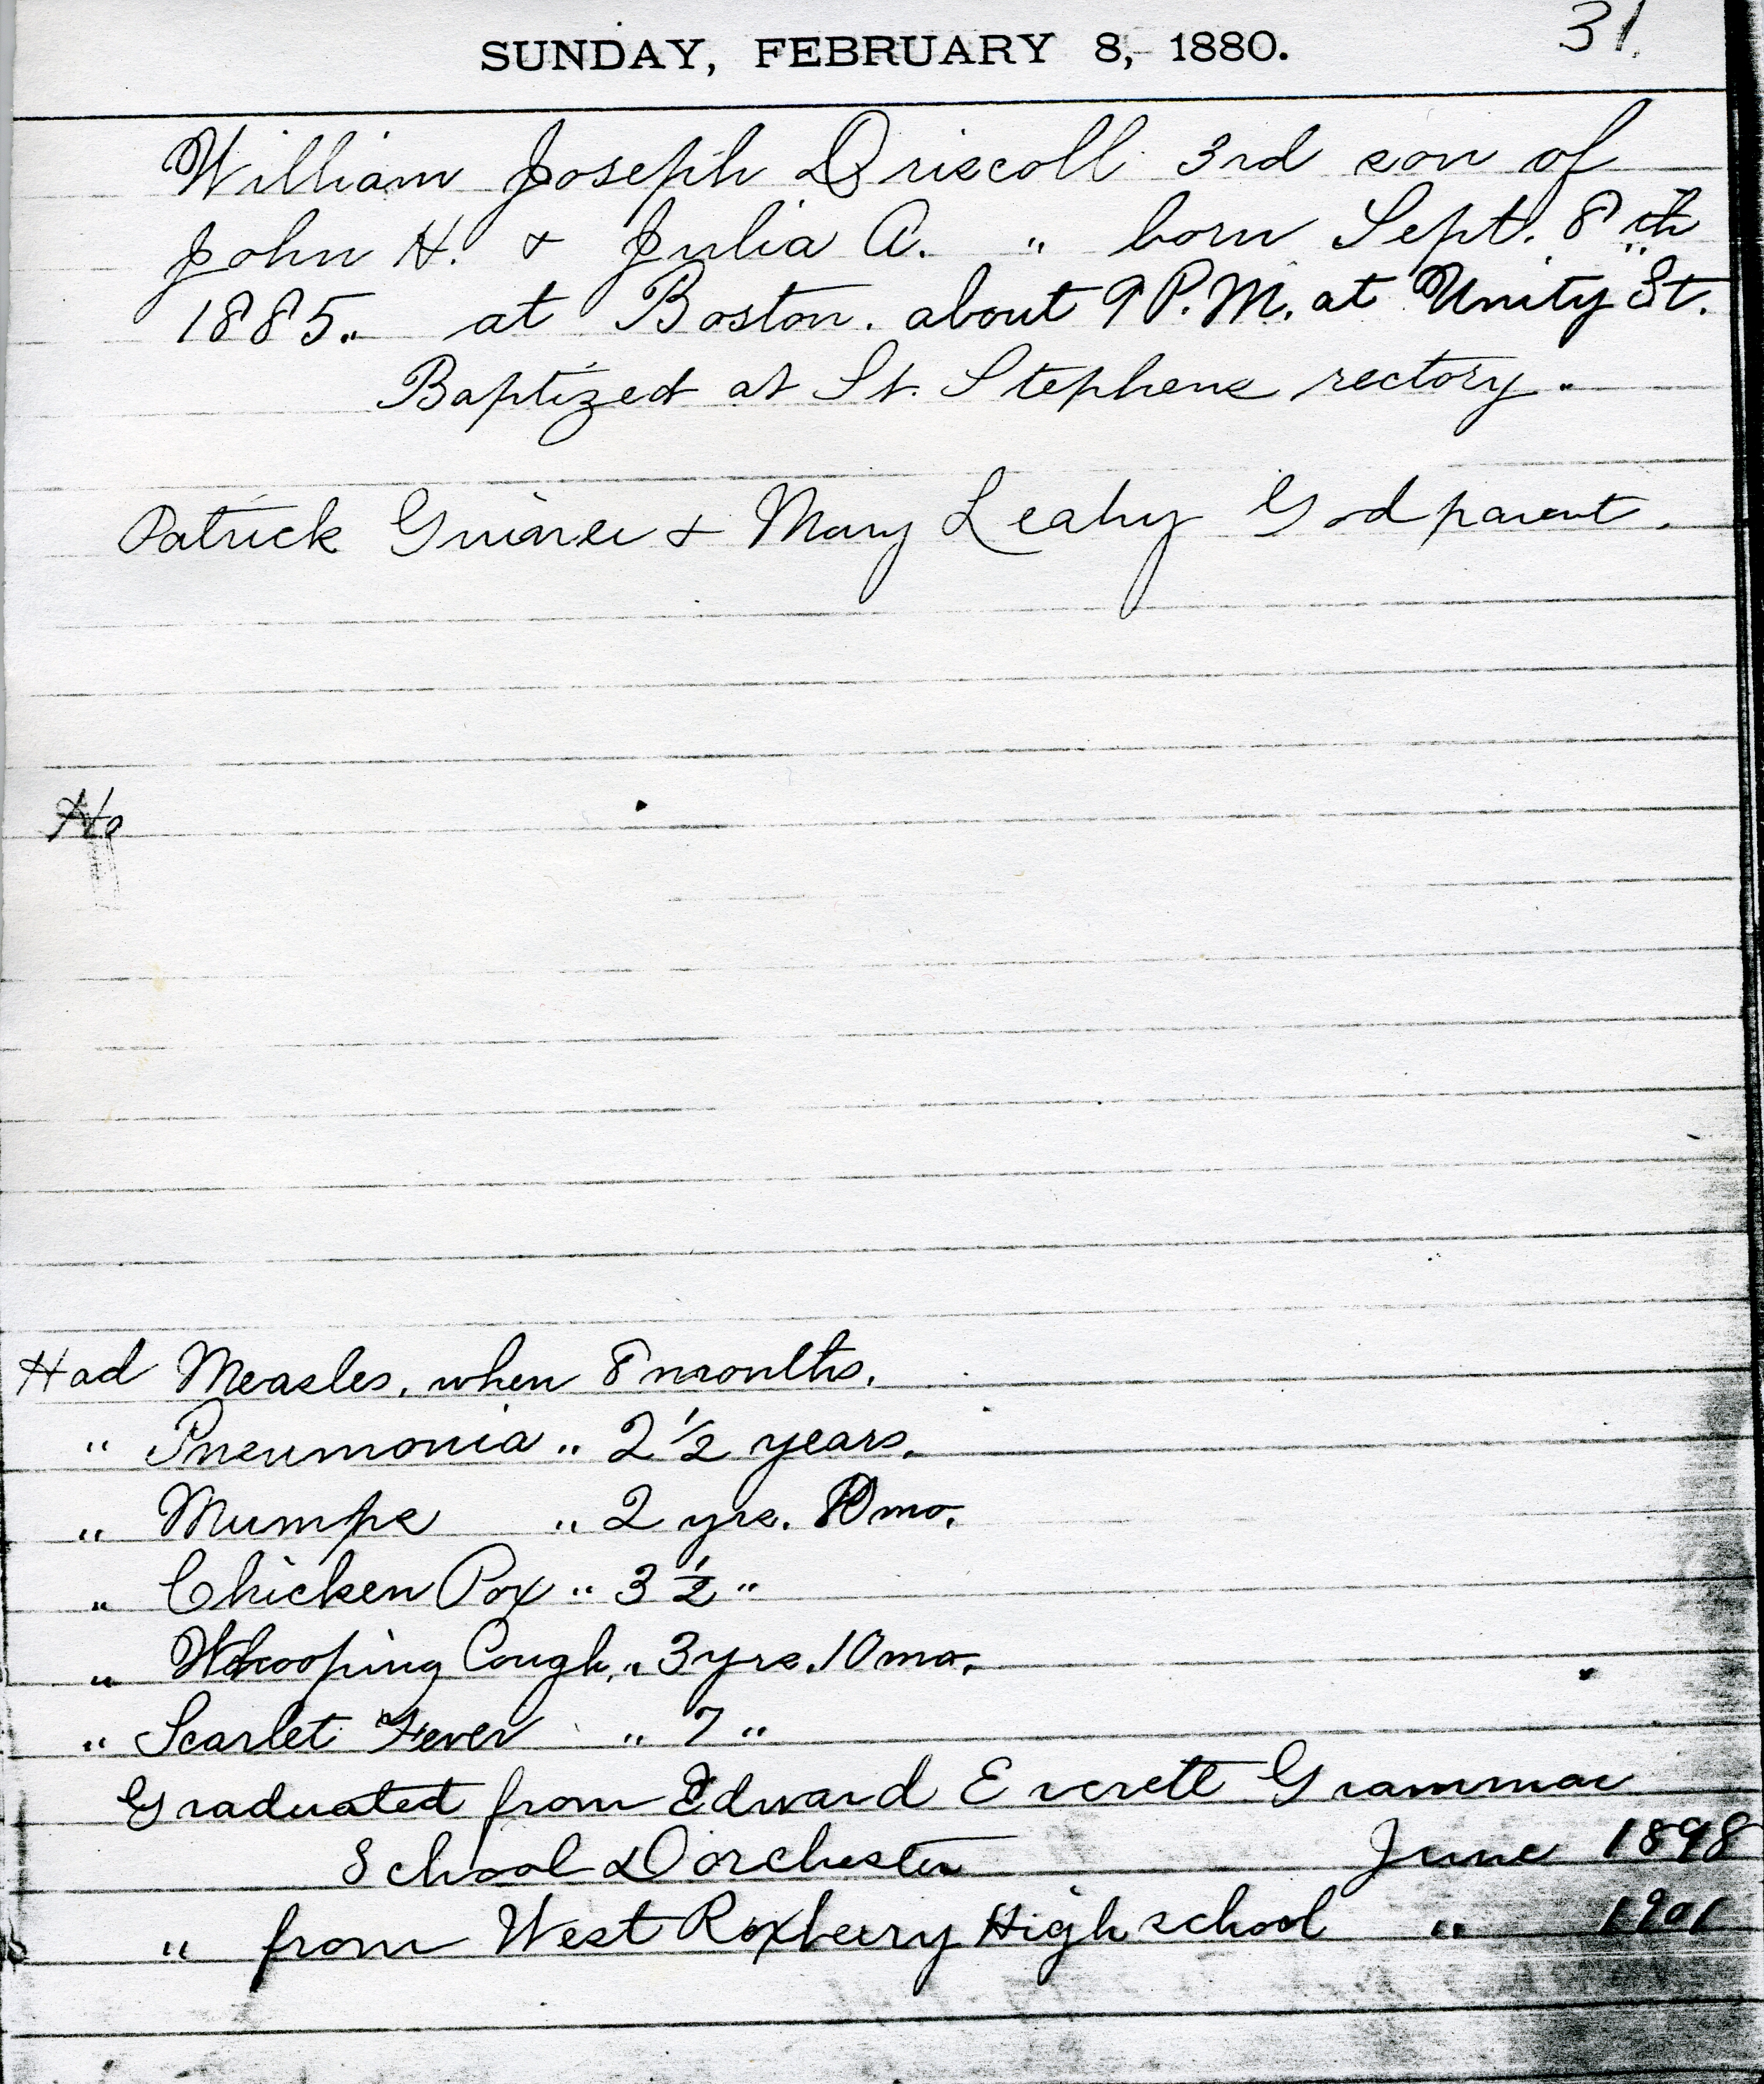 SUNDAY, FEBRUARY 8, 1880. 31.
William Joseph Driscoll 3rd son of
John H. & Julia A. " born Sept. 8th
1885. at Boston. about 9 P.M. at Unity St.
Baptized at St. Stephens rectory.
Patrick & Mary Leahy Godparent.
Had Measles, when 8 months.
" Pneumonia " 2 1/2 years.
" Mumps " 2 yrs. mo.
" Chicken Pox " 3 1/2 "
" Whooping Cough, " 3 yrs. 10 mo.
" Scarlet Fever " 7 "
Graduated from Edward Everett Grammar
School Dorchester June 1898
" from West Roxbury High school " 1901